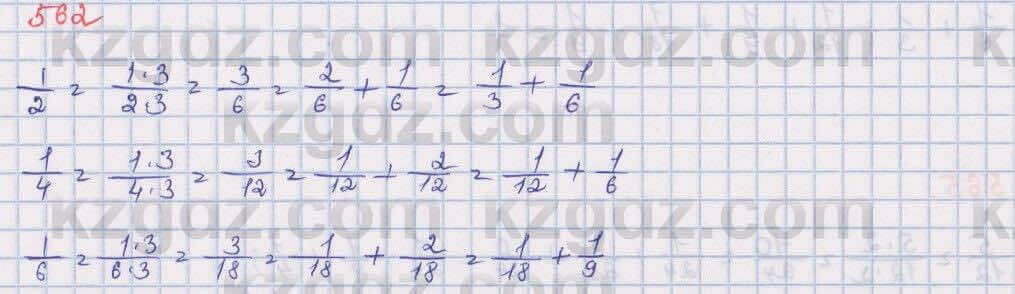 562
kzgdz.com kzgdz.com
1/2 = 1·3/2·3 = 3/6 = 2/6 + 1/6 = 1/3 + 1/6
kzgdz.com
1/4 = 1·3/4·3 = 3/12 = 1/12 + 2/12 = 1/12 + 1/6
kzgdz.com kzgdz.com
1/6 = 1·3/6·3 = 3/18 = 1/18 + 2/18 = 1/18 + 1/9
kzgdz.com